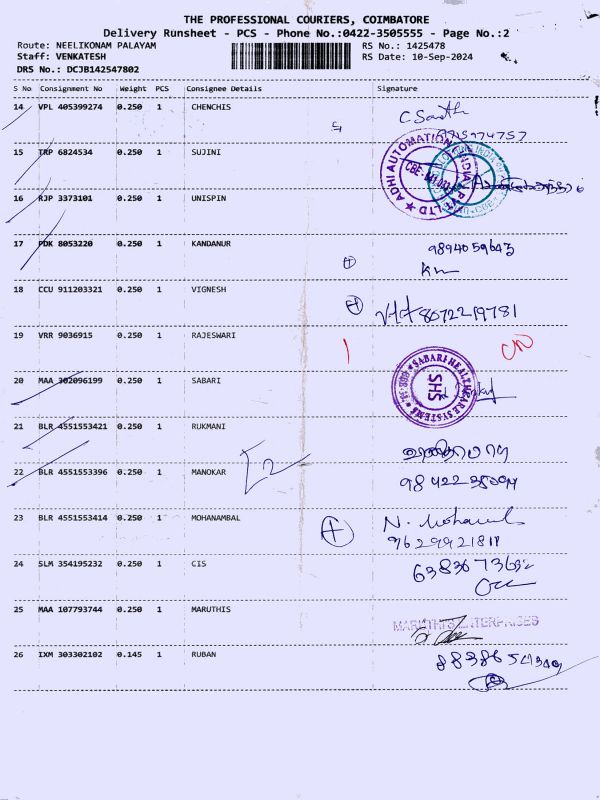 THE PROFESSIONAL COURIERS, COIMBATORE
Delivery Runsheet - PCS - Phone No.:0422-3505555 - Page No.:2
Route: NEELIKONAM PALAYAM RS No.: 1425478
Staff: VENKATESH RS Date: 10-Sep-2024
DRS No.: DCJB142547802
S No Consignment No Weight PCS Consignee Details Signature
14 VPL 405399274 0.250 1 CHENCHIS
15 TRP 6824534 0.250 1 SUJINI
ADHI AUTOMATION INDIA PVT LTD
16 RJP 3373101 0.250 1 UNISPIN
17 PDK 8053220 0.250 1 KANDANUR 9894059643
18 CCU 911203321 0.250 1 VIGNESH
8072219781
19 VRR 9036915 0.250 1 RAJESWARI
20 MAA 302096199 0.250 1 SABARI SABARI HEALTHCARE SYSTEMS SHS
21 BLR 4551553421 0.250 1 RUKMANI
22 BLR 4551553396 0.250 1 MANOKAR 2
23 BLR 4551553414 0.250 1 MOHANAMBAL N.
9629921811
24 SLM 354195232 0.250 1 CIS
25 MAA 107793744 0.250 1 MARUTHIS MARUTHIS ENTERPRISES
26 IXM 303302102 0.145 1 RUBAN